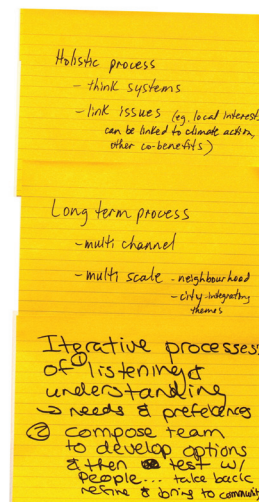 Holistic process
- think systems
- link issues (eg. local interest
can be linked to climate action,
other co-benefits)
Long term process
- multi channel
- multi scale - neighbourhood
- city - integrating
themes
Iterative processes
① of listening &
understanding
→ needs & preferences
② compose team
to develop options
& then test w/
people... take back
refine & bring to